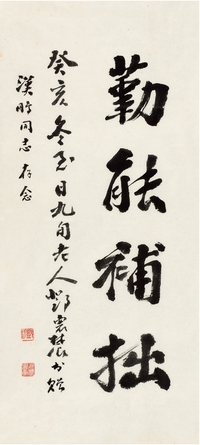 勤能補拙
癸亥冬至日九旬老人鄧雲林書贈
漢时同志 存念